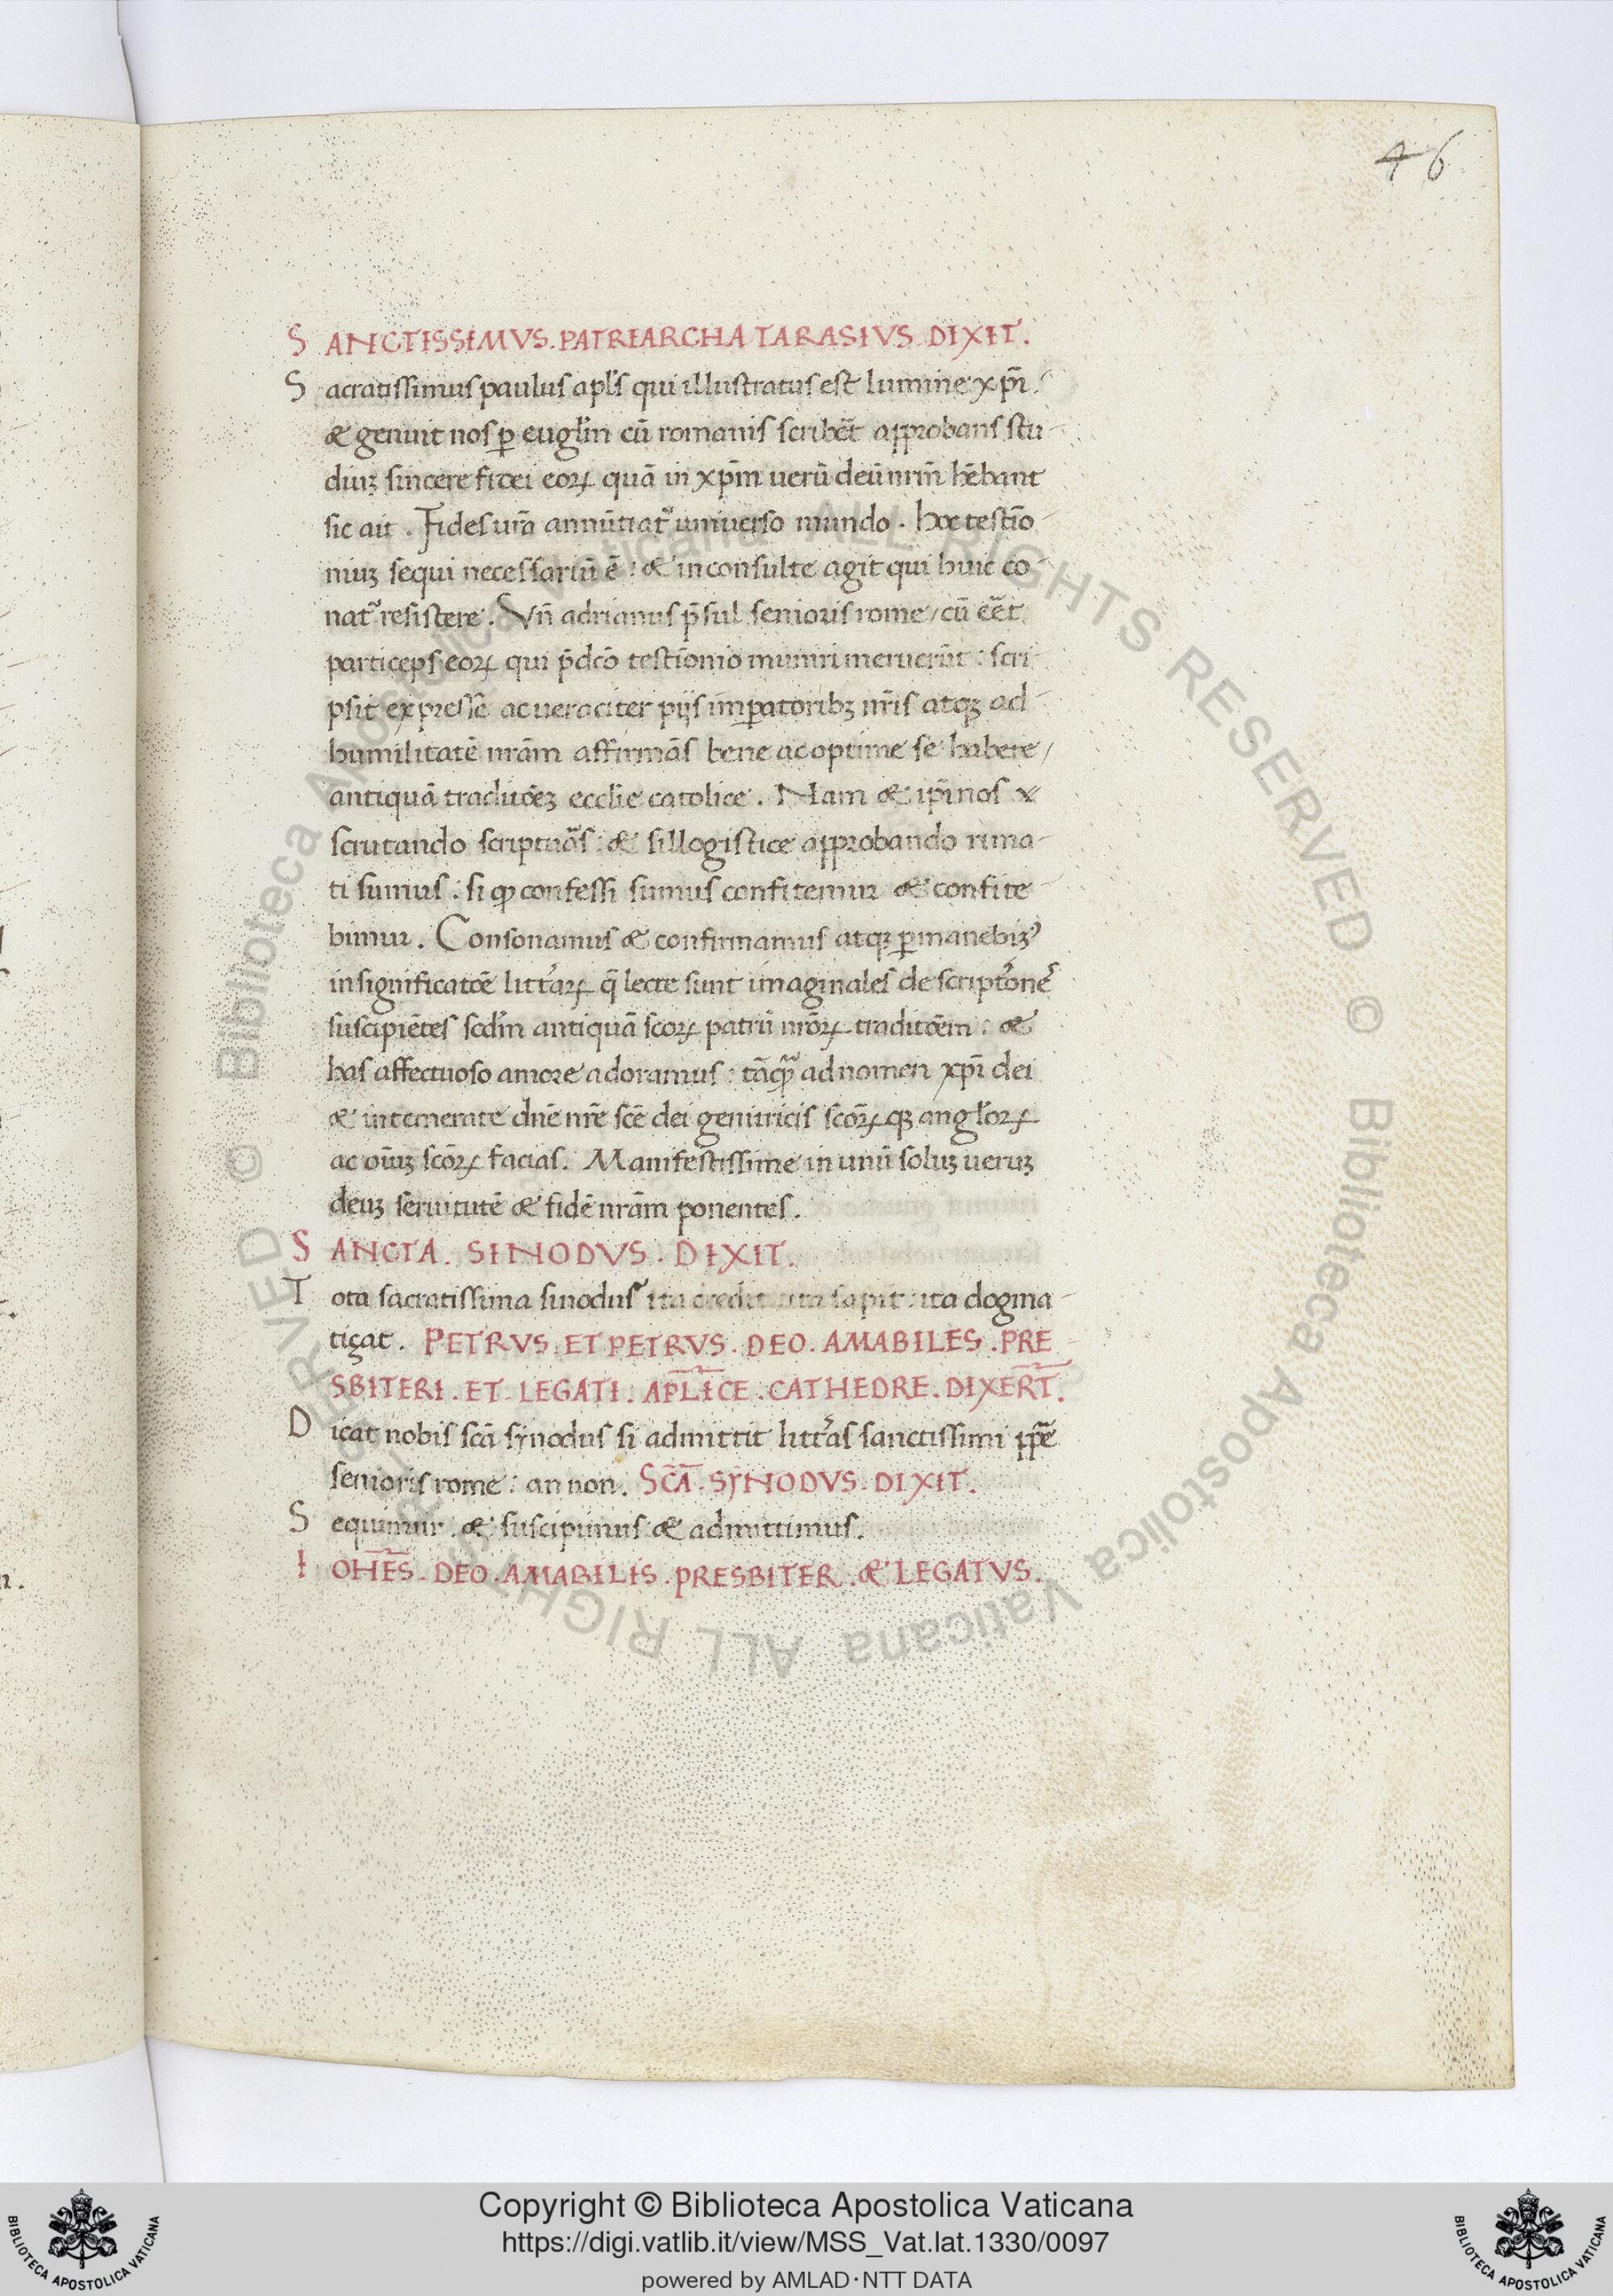 46
SANCTISSIMVS. PATRIARCHA TARASIVS DIXIT.
Sacratissimus paulus apl̅s qui illustratus est lumine xp̅i
& genuit nos ꝑ eugl̅iu̅ cū romanis scribe̅t approbans stu-
diuꝫ sincere fidei eoꝝ quā in xp̅m uerū deū nr̅m hēbant
sic ait. Fides ur̅a annu̅tiat᷑ uniuerso mundo. hoc testīo-
niuꝫ sequi necessariū ē: & inconsulte agit qui huic co-
nat᷑ resistere. Vn̅ adrianus p̅sul senioris rome/ cū ee̅t
particeps eoꝝ qui p̅dco̅ testīonio muniri meruerūt: scri-
psit expresse ac ueraciter pijs imꝑatoribꝫ nr̅is atqꝫ ad
humilitatē nr̅am affirmās bene ac optime se habere/
antiquā traditōeꝫ eccl̅ie catolice. Nam & ip̅i nos
scrutando scriptur̅as: & sillogistice approbando rima-
ti sumus: si qꝫ confessi sumus confitemur & confite-
bimur. Consonamus & confirmamus atqꝫ ꝑmanebiꝫ᾿
in significatōe litt̅aꝝ q̅ lecte sunt imaginales descripto̅nes
suscipie̅tes scd̅m antiquā sc̅oꝝ patrū nr̅oꝝ traditōem: &
has affectuoso amore adoramus: tāqꝫ ad nomen xp̅i dei
& intemerate dn̅e nr̅e sc̅e dei genitricis sc̅oꝝqꝫ angl̅oꝝ
ac oi̅uꝫ sc̅oꝝ facias. Manifestissime in unū soluꝫ ueruꝫ
deuꝫ seruitutē & fidē nr̅am ponentes.
SANCTA. SINODVS. DIXIT.
Tota sacratissima sinodus ita credit: ita sapit: ita dogma-
tiçat. PETRVS. ET PETRVS. DEO. AMABILES. PRE-
SBITERI. ET. LEGATI. APL̅ICE. CATHEDRE. DIXER̅T.
Dicat nobis sc̅a synodus si admittit litt̅as sanctissimi pp̅e
senioris rome: an non. SC̅A. SYNODVS. DIXIT.
Sequimur & suscipimus & admittimus.
IOHE̅S. DEO. AMABILIS. PRESBITER. & LEGATVS.
© Biblioteca Apostolica Vaticana ALL RIGHTS RESERVED © Biblioteca Apostolica Vaticana ALL RIGHTS RESERVED
Copyright © Biblioteca Apostolica Vaticana
https://digi.vatlib.it/view/MSS_Vat.lat.1330/0097
powered by AMLAD·NTT DATA
BIBLIOTECA APOSTOLICA VATICANA
BIBLIOTECA APOSTOLICA VATICANA